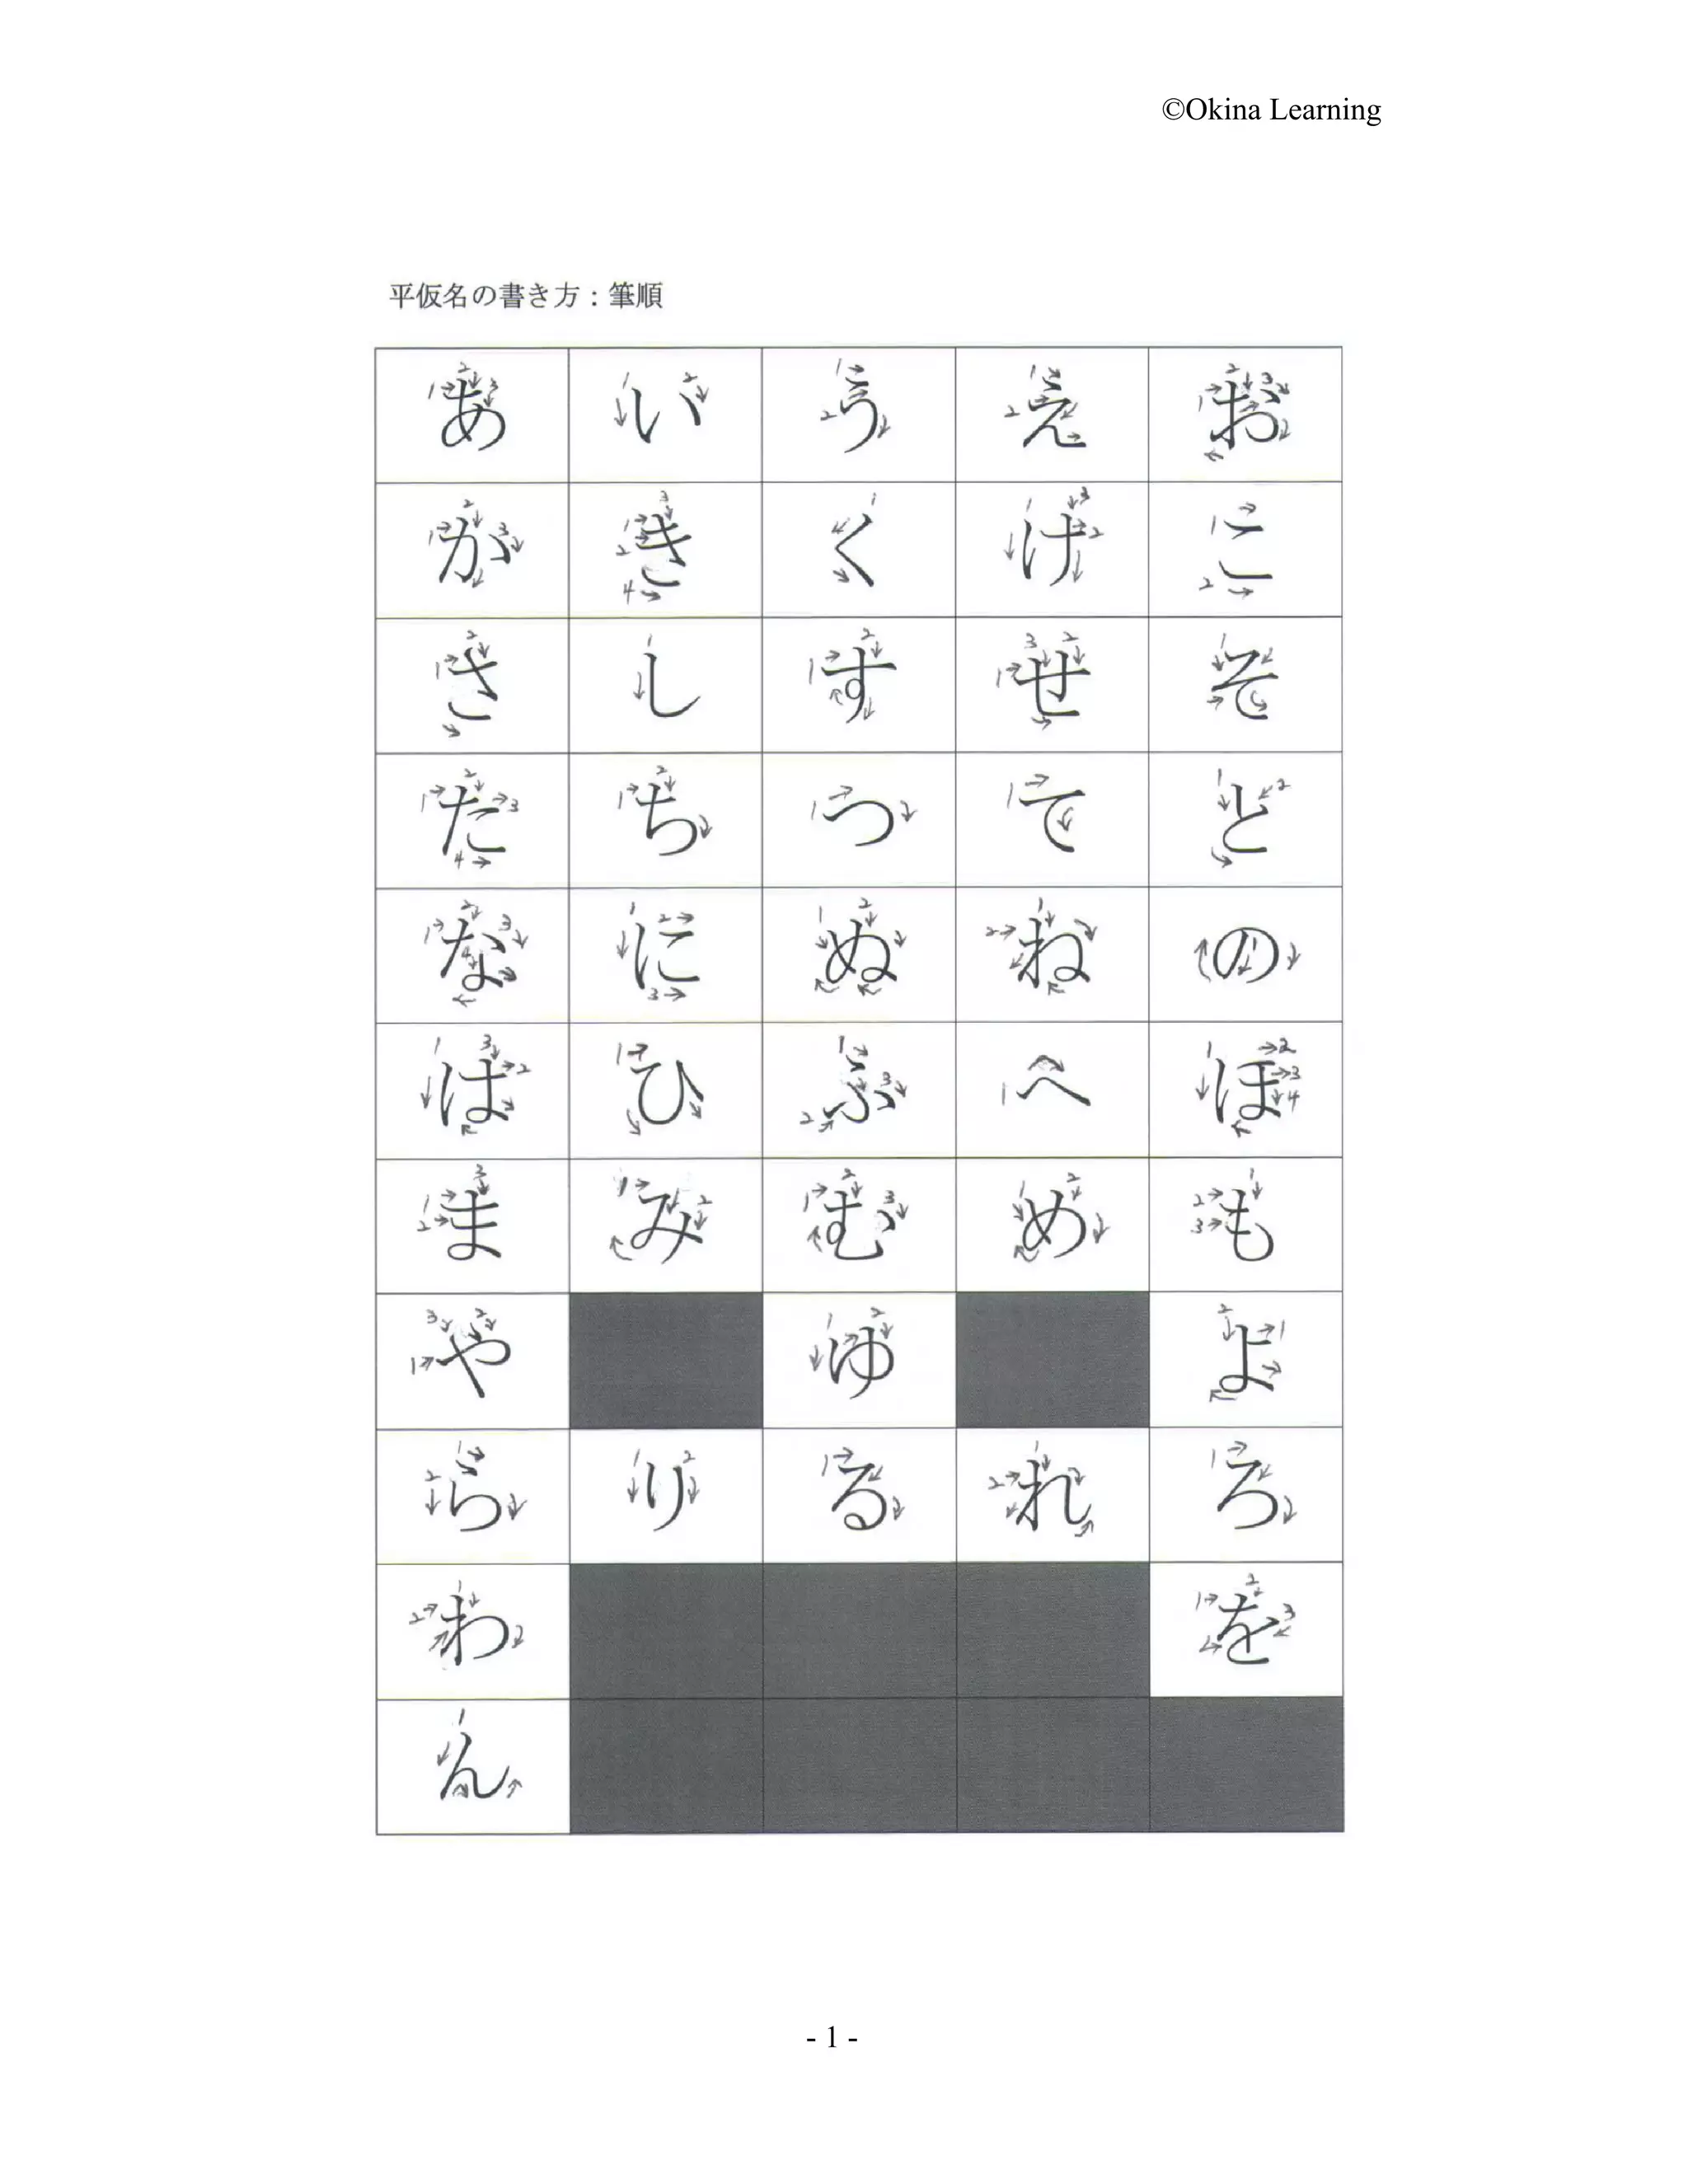 ©Okina Learning
平仮名の書き方：筆順
あ い う え お
か き く け こ
さ し す せ そ
た ち つ て と
な に ぬ ね の
は ひ ふ へ ほ
ま み む め も
や ゆ よ
ら り る れ ろ
わ を
ん
- 1 -